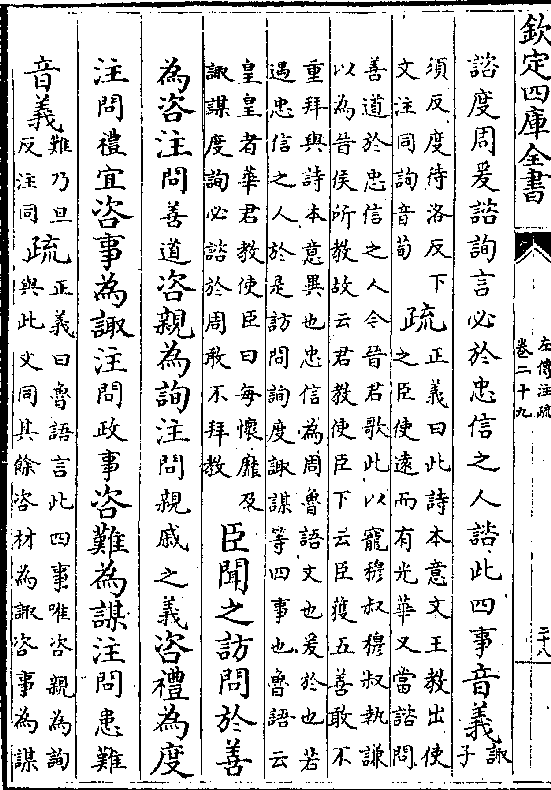 欽定四庫全書
左傳注疏
卷二十九
二十八
諮度周爰諮詢言必於忠信之人諮此四事音義
諏
子
須反度待洛反下
文注同詢音荀
疏
正義曰此詩本意文王教出使
之臣使遠而有光華又當諮問
善道於忠信之人今晉君歌此以寵穆叔穆叔執謙
以為晉侯所教故云君教使臣下云臣獲五善敢不
重拜與詩本意異也忠信為周魯語文也爰於也若
遇忠信之人於是訪問詢度諏謀等四事也魯語云
皇皇者華君教使臣曰每懷靡及
諏謀度詢必諮於周敢不拜教
臣聞之訪問於善
為咨注問善道咨親為詢注問親戚之義咨禮為度
注問禮宜咨事為諏注問政事咨難為謀注問患難
音義
難乃旦
反注同
疏
正義曰魯語言此四事唯咨親為詢
與此文同其餘咨材為諏咨事為謀